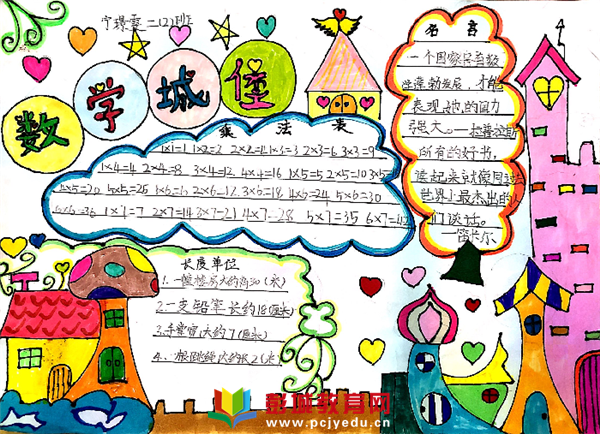 宁璟雯 二(2)班
数学城堡
乘法表
1×1=1 1×2=2 2×2=4 1×3=3 2×3=6 3×3=9
1×4=4 2×4=8 3×4=12 4×4=16 1×5=5 2×5=10 3×5
4×5=20 5×5=25 1×6=6 2×6=12 3×6=18 4×6=24 5×6=30
6×6=36 1×7=7 2×7=14 3×7=21 4×7=28 5×7=35 6×7=42
名言
一个国家只有数
学蓬勃发展,才能
表现她的国力
强大。—拉普拉斯
所有的好书,
读起来就像同过去
世界上最杰出的人
们谈话。
—笛卡尔
长度单位
1.一幢楼房大约高30(米)
2.一支铅笔长约18(厘米)
3.手臂宽大约7(厘米)
4.一根跳绳大约长2(米)
彭城教育网
www.pcjyedu.cn